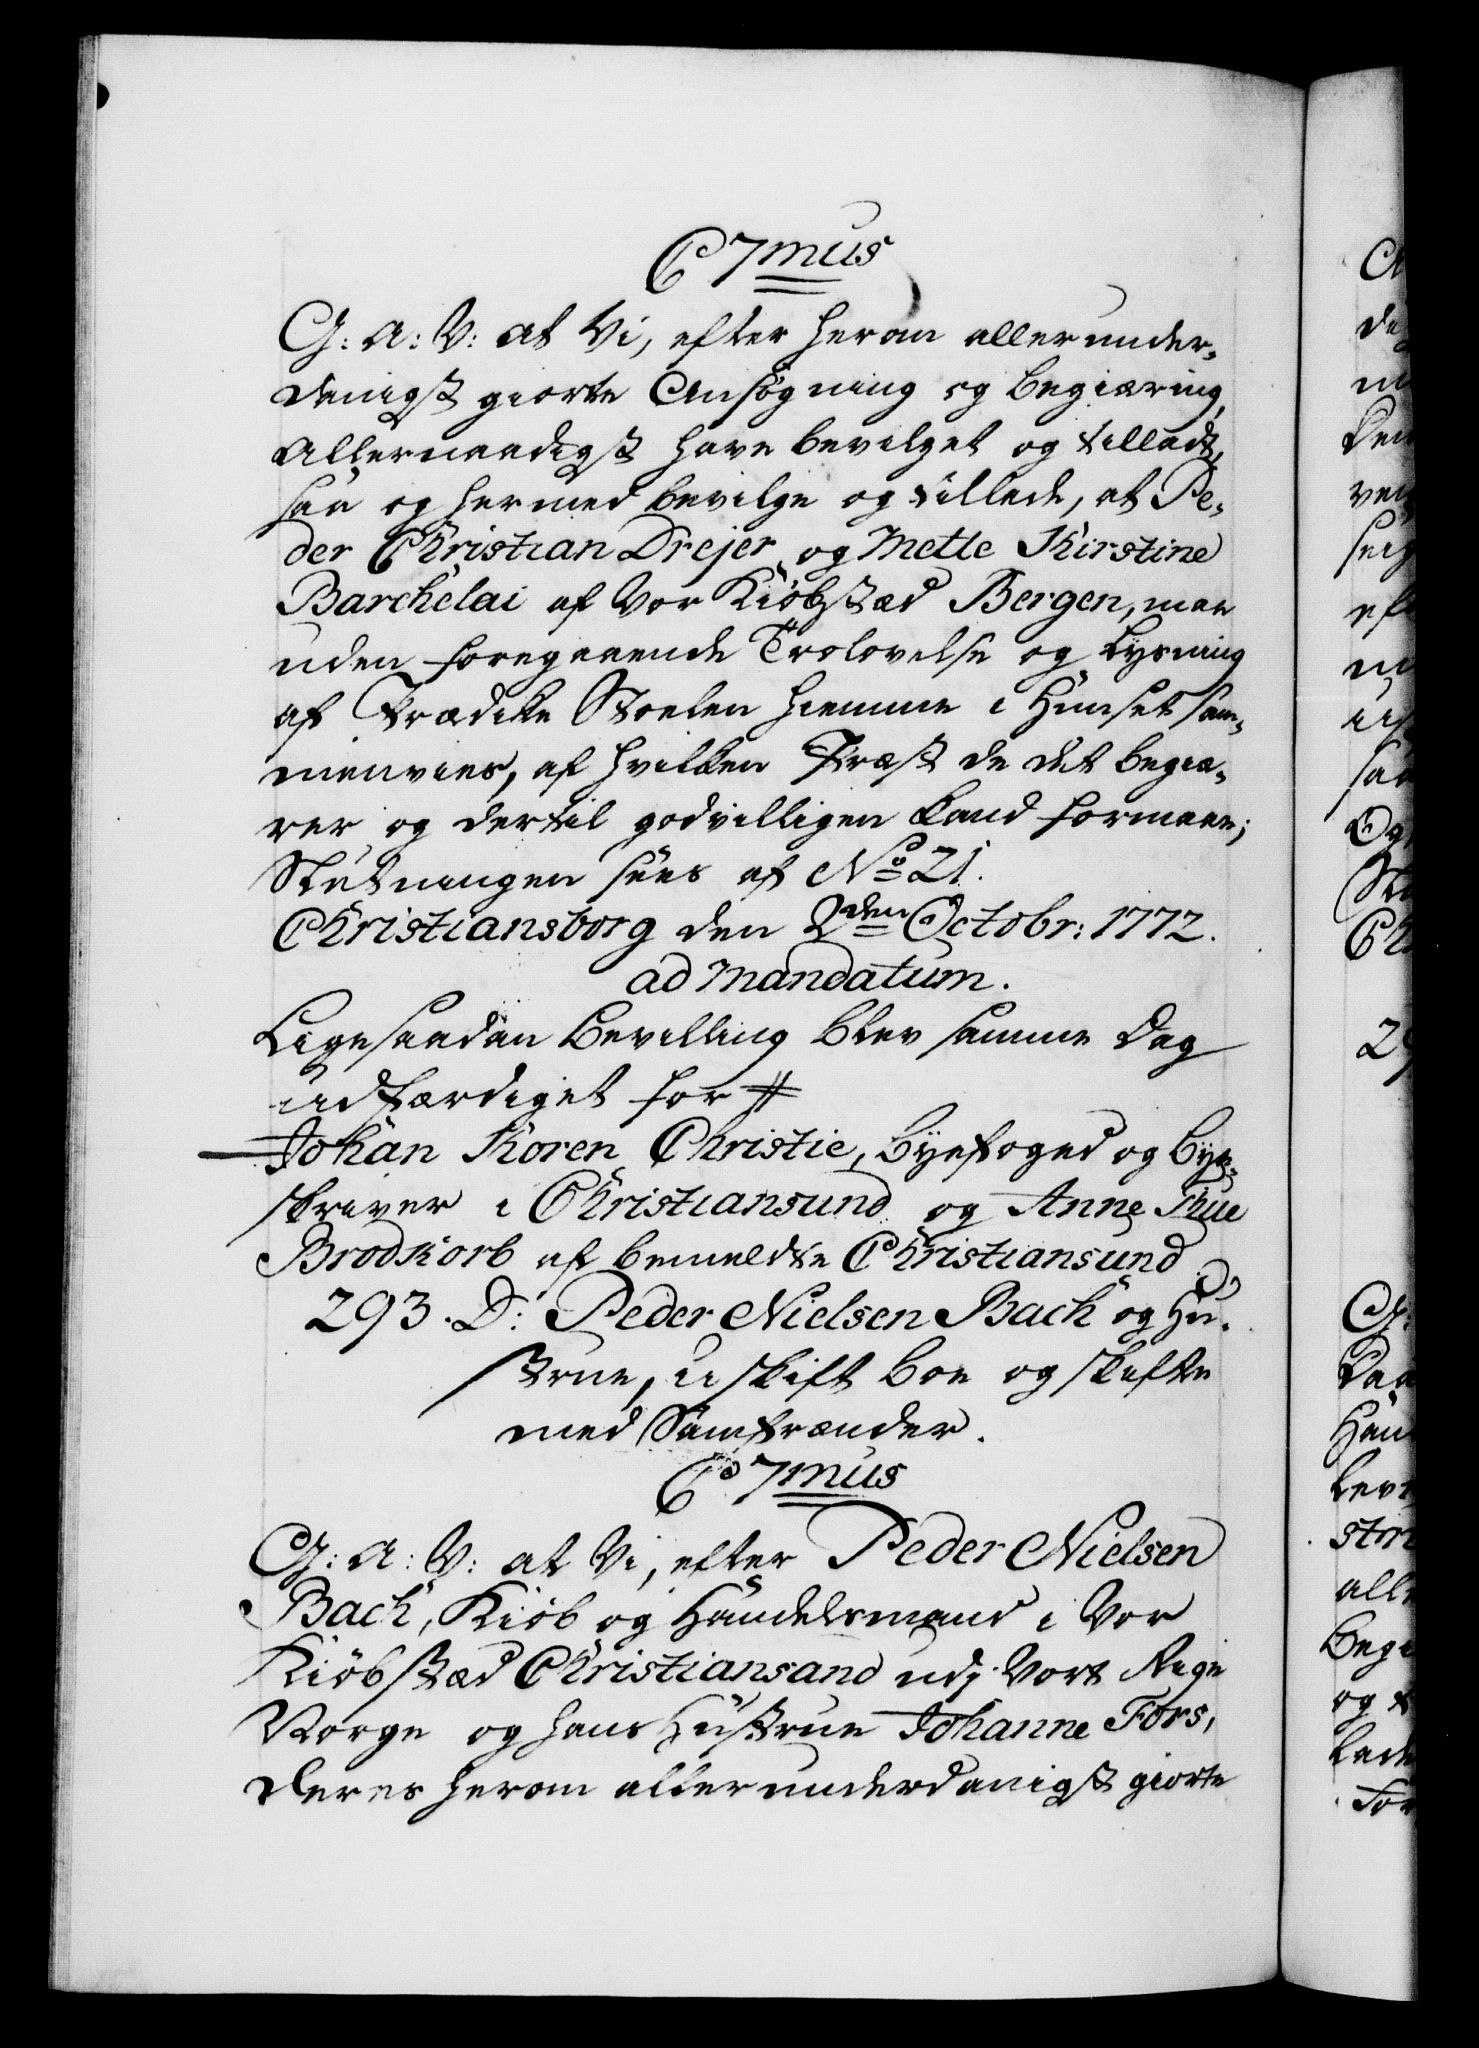 C 7mus
G: A: V: at Vi, efter herom allerunder-
danigst giorte Ansøgning og Begiæring,
Allernaadigst have bevilget og tilladt,
saa og hermed bevilge og tillade, at Pe-
der Christian Drejer og Mette Kirstine
Barchelai af Vor Kiøbstæd Bergen, maae
uden foregaaende Trolovelse og Lysning
af Prædike Stoelen hiemme i Huuset sam-
menvies, af hvilken Præst de det begiæ-
rer og dertil godvilligen kand formaae;
Slutningen sees af No 21.
Christiansborg den 2den Octobr: 1772.
ad mandatum.
Ligesaadan Bevilling blev samme Dag
udfærdiget for #
Johan Koren Christie, Byefoged og Bye-
skriver i Christiansund og Anne Thue
Brodkorb af bemeldte Christiansund
293. D: Peder Nielsen Bach og Hu-
strue, uskift Boe og skifte
med Samfrænder.
C 7mus
G: A: V: at Vi, efter Peder Nielsen
Bach, Kiøb og Handelsmand i Vor
Kiøbstæd Christiansand udj Vort Rige
Norge og hans Hustrue Johanne Fors,
deres herom allerunderdanigst giorte